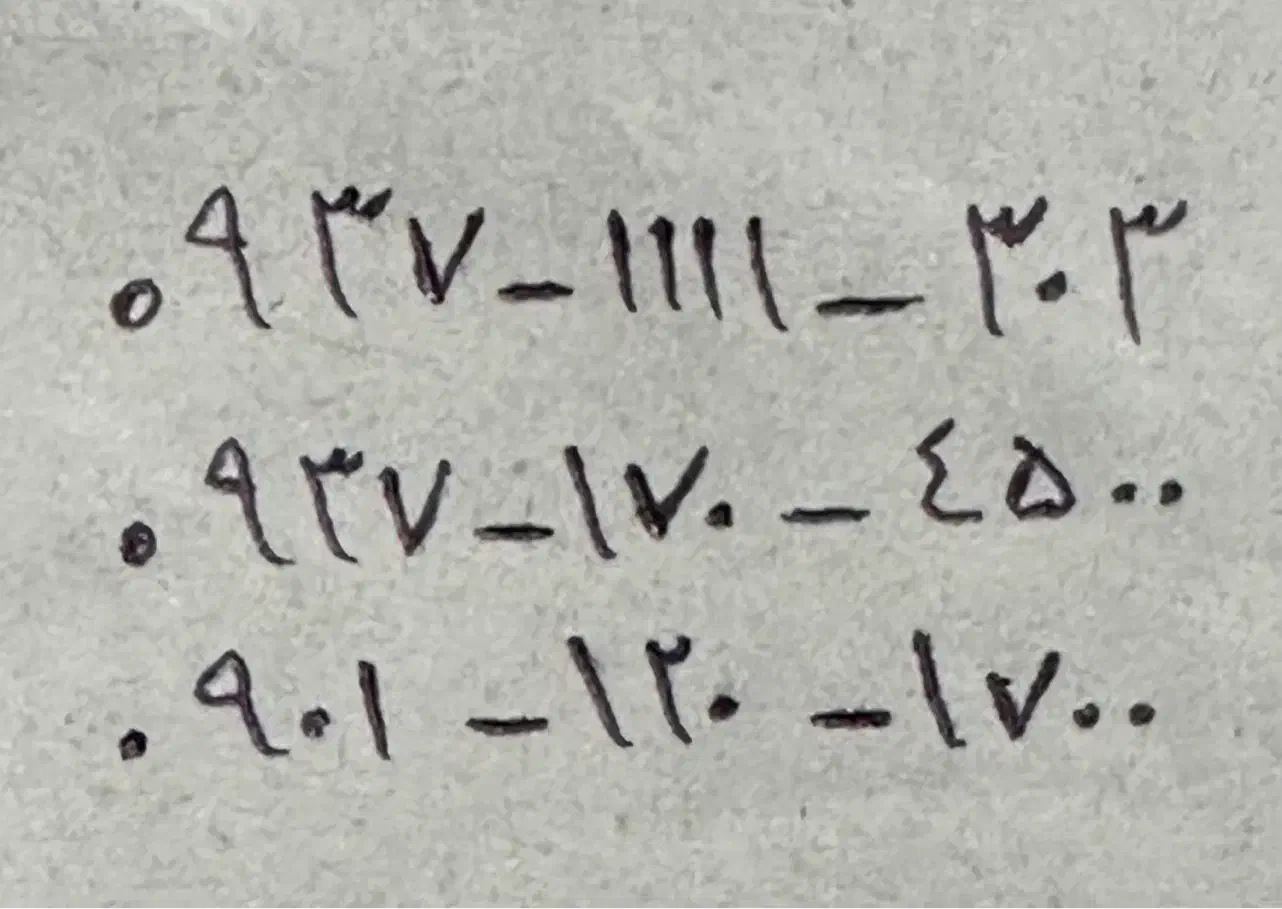 ۰۹۳۷-۱۱۱۱-۳۰۳
۰۹۳۷-۱۷۰-۴۵۰۰
۰۹۰۱-۱۲۰-۱۷۰۰